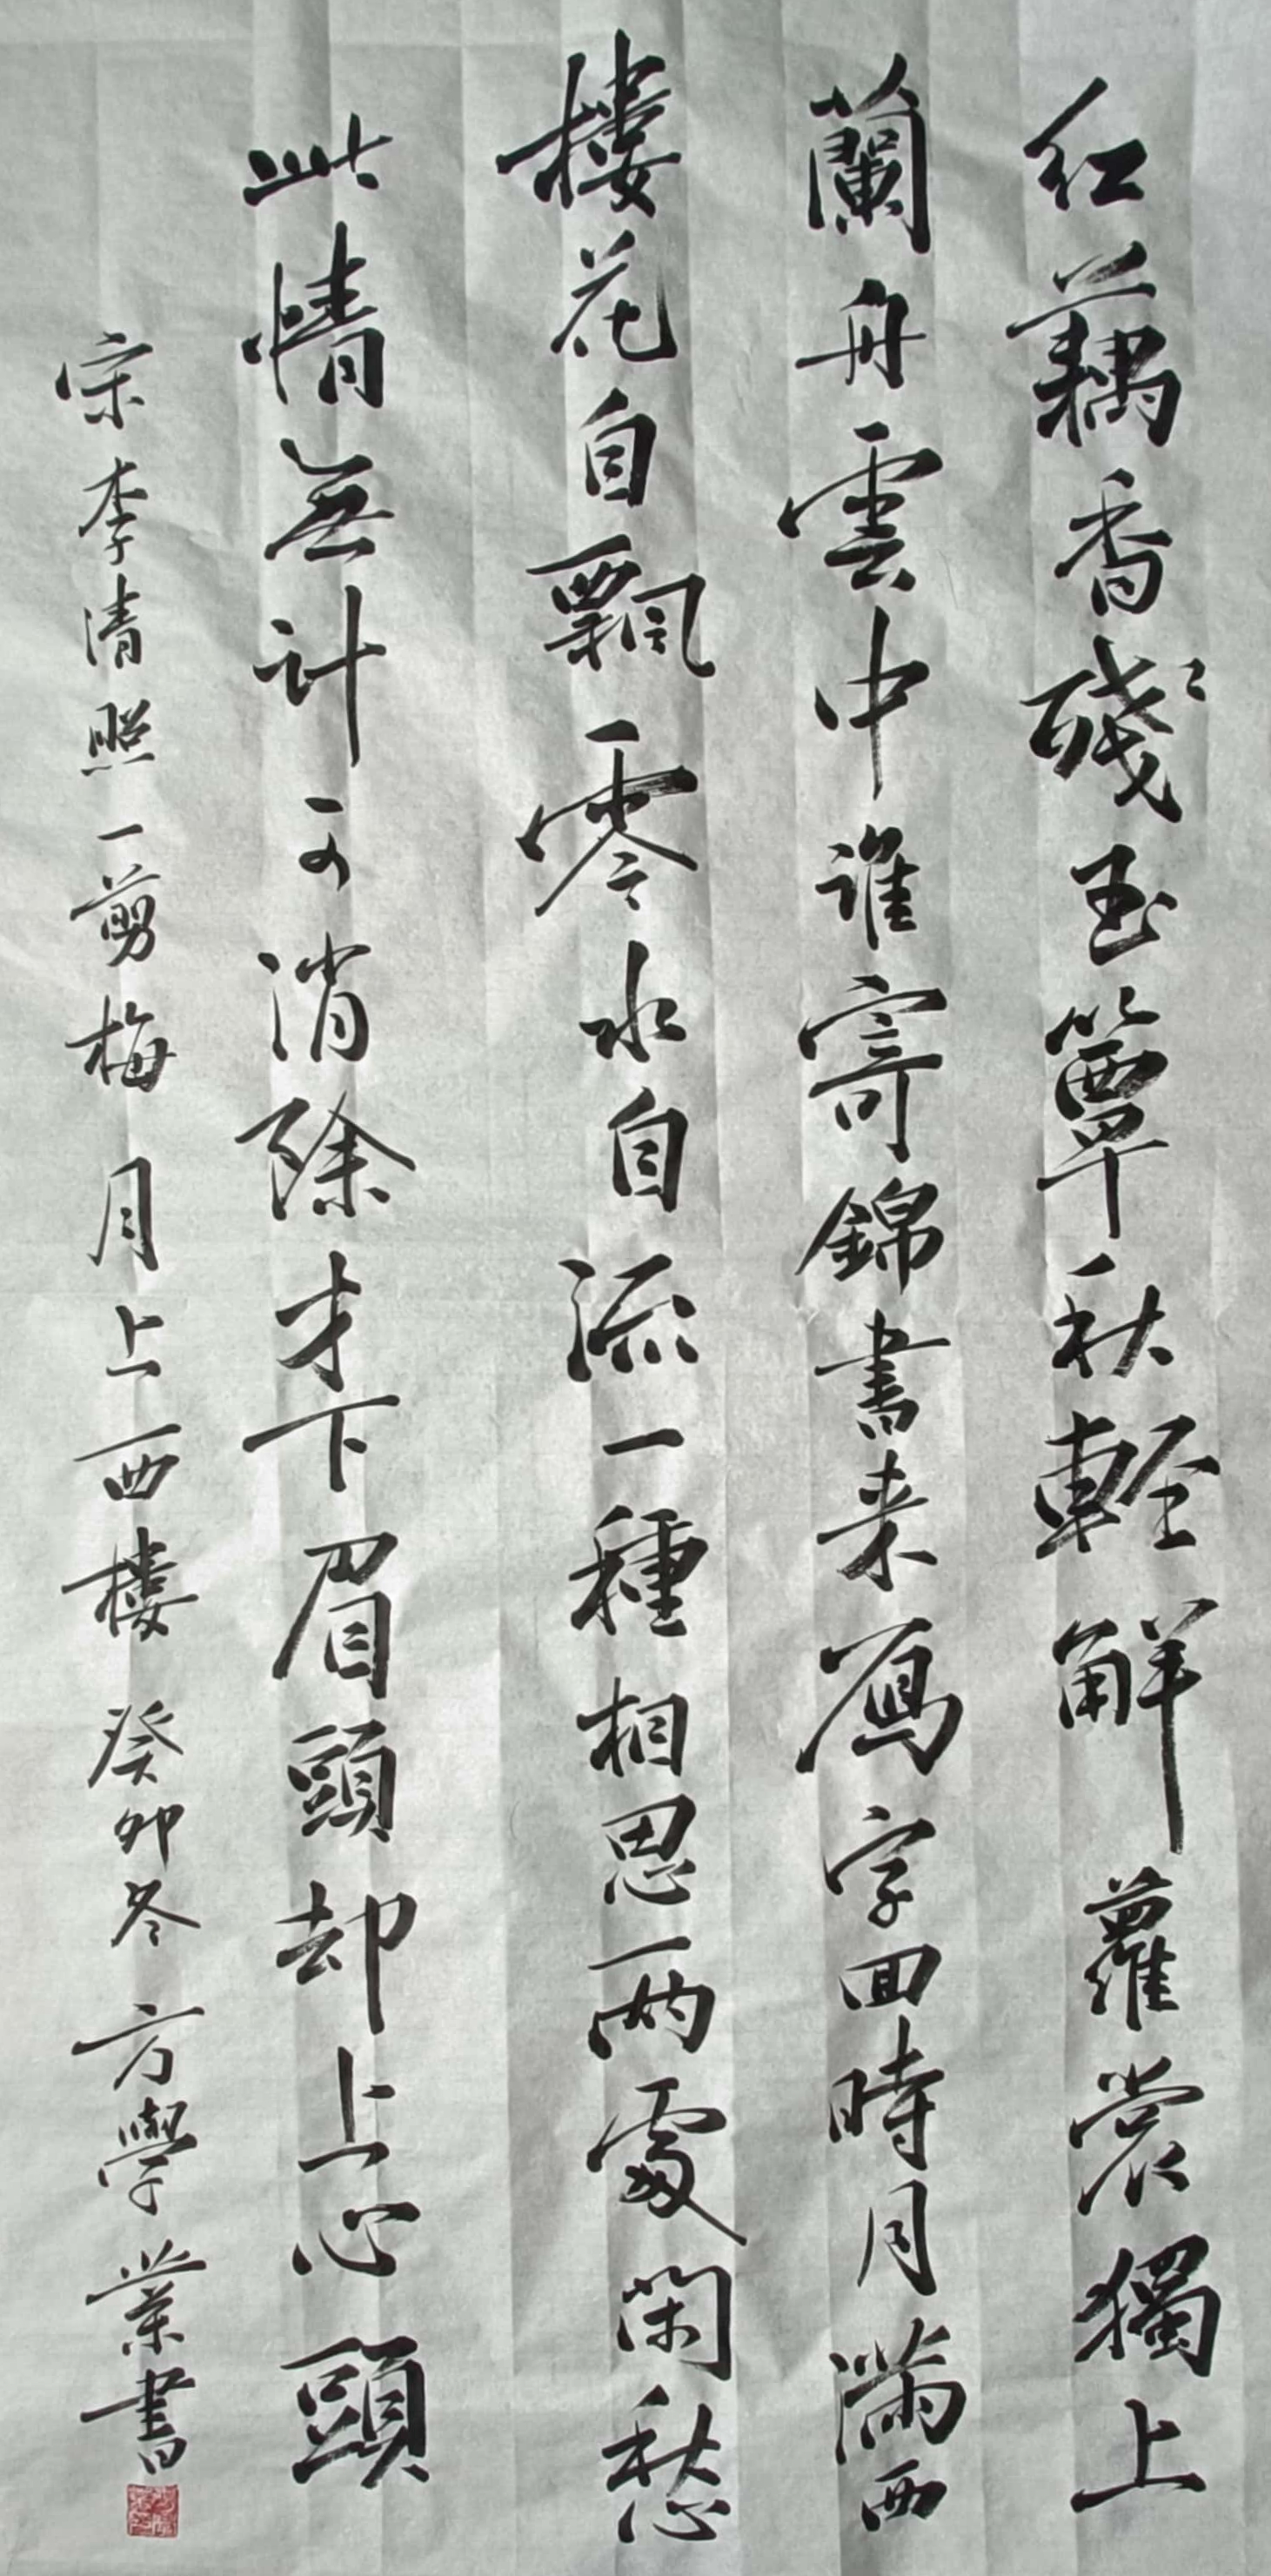 红藕香残玉簟秋輕解蘿裳獨上
蘭舟雲中誰寄錦書来鴈字回時月滿西
樓花自飄零水自流一種相思兩處閑愁
此情無計可消除才下眉頭却上心頭
宋李清照一剪梅月上西樓癸卯冬方學業書